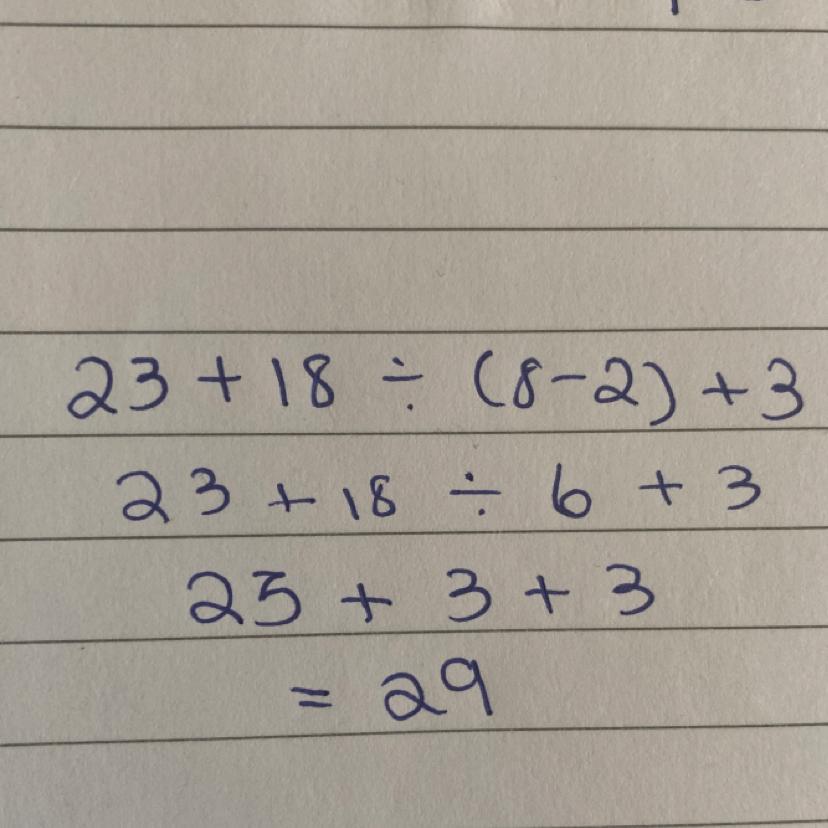 23 + 18 ÷ (8-2) + 3
23 + 18 ÷ 6 + 3
23 + 3 + 3
= 29